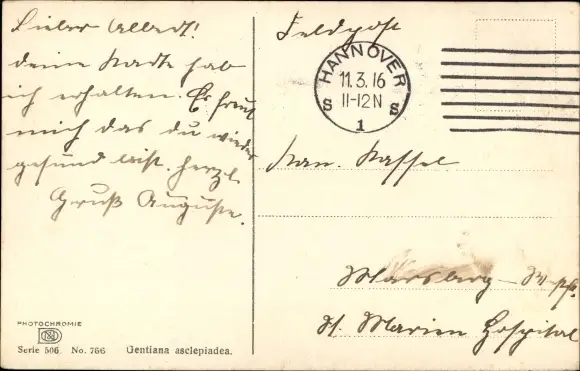 Lieber Albert!
deine Karte hab
ich erhalten. Es freut
mich das du wieder
gesund bist. Herzl.
Gruß Auguste.
Feldpost
HANNOVER
11.3.16
11-12N
S S
1
Kan. Kassel
Marsberg - Westf.
St. Marien Hospital
PHOTOCHROMIE
Serie 506 No. 766 Gentiana asclepiadea.